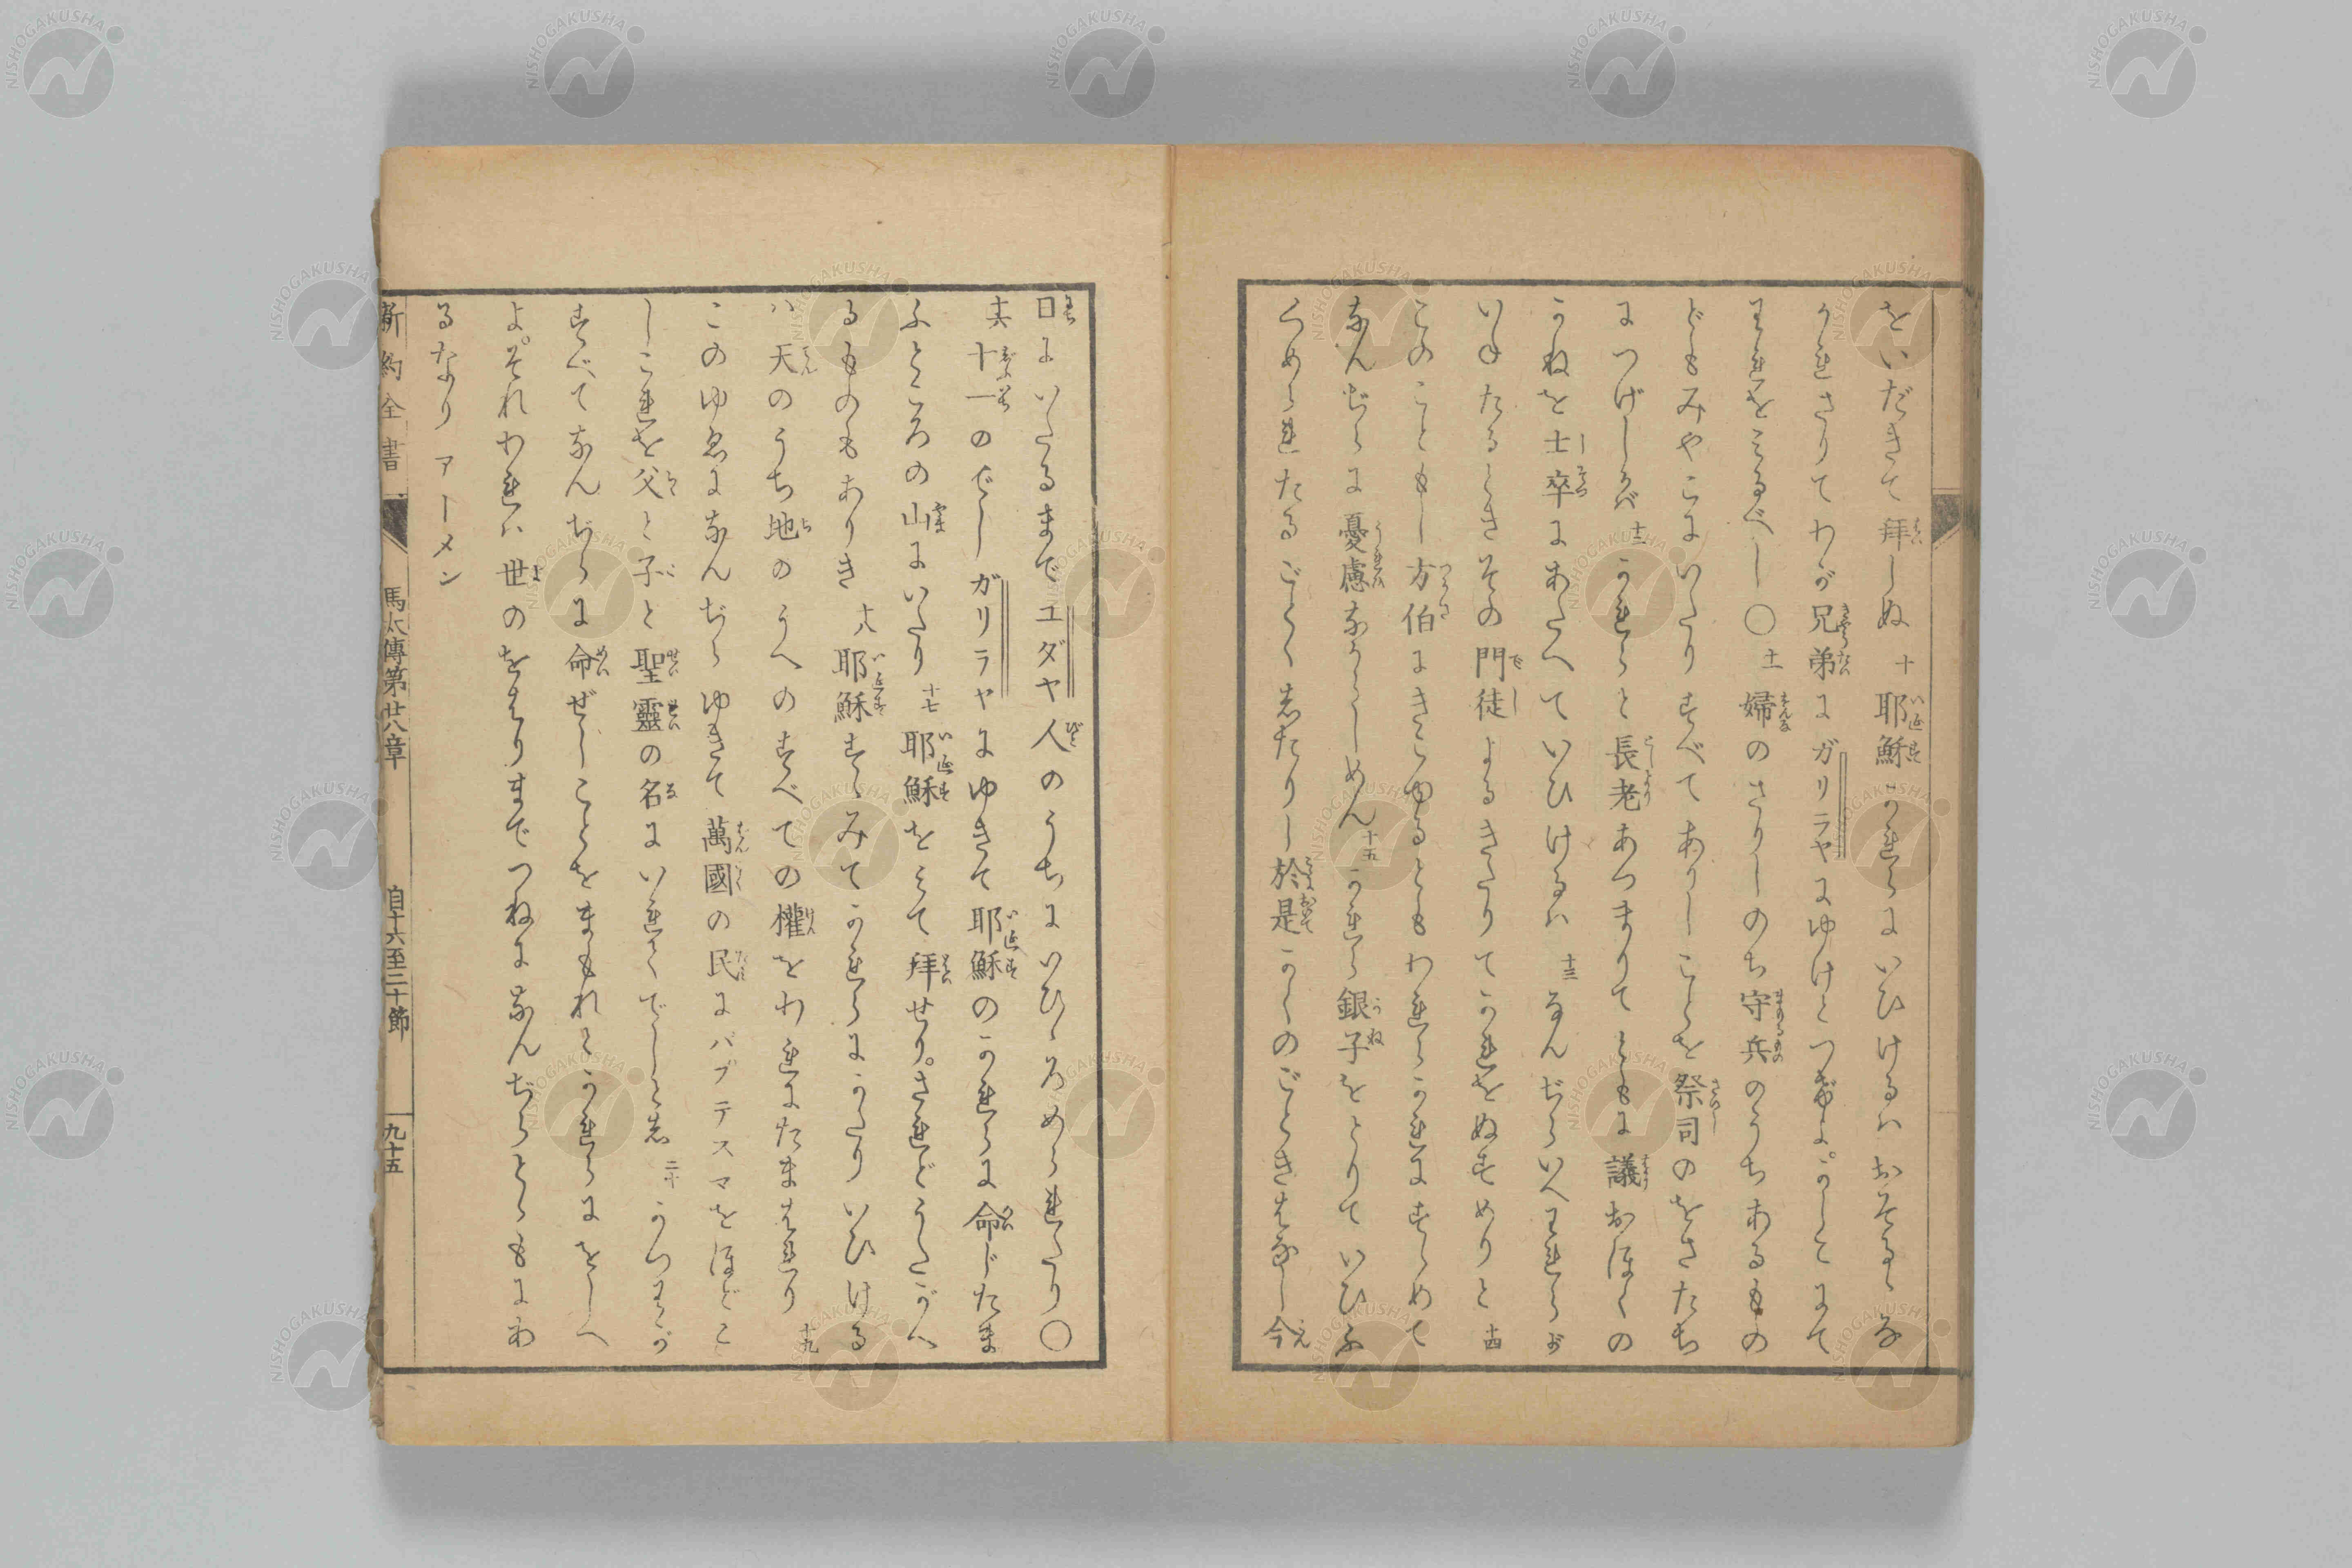 をいだきて拜しぬ 十 耶穌かれらにいひけるハおそるゝな
かれさりてわが兄弟にガリラヤにゆけとつげよ。かしこにて
われをみるべし〇 十一 婦のさりしのち守兵のうちあるもの
どもみやこにいたりすべてありしことを祭司のをさたち
につげしかバ 十二 かれらと長老あつまりてともに議おほくの
かねを士卒にあたへていひけるハ 十三 なんぢらいへわれらが
いねたるときその門徒よるきたりてかれをぬすめりと 十四
このこともし方伯にきこゆるともわれらかれにすゝめて
なんぢらに憂慮なからしめん 十五 かれら銀子をとりていひふ
くめられたるごとくしたりし於是かくのごときはなし今
日にいたるまでユダヤ人のうちにいひひろめられたり〇
十六 十一のでしガリラヤにゆきて耶穌のかれらに命じたま
ふところの山にいたり 十七 耶穌をみて拜せり。されどうたがへ
るものもありき 十八 耶穌すゝみてかれらにかたりいひける
ハ天のうち地のうへのすべての權をわれにたまはれり 十九
このゆゑになんぢらゆきて萬國の民にバプテスマをほどこ
しこれを父と子と聖靈の名にいれてでしとし 二十 かつわが
すべてなんぢらに命ぜしことをまもれとかれらにをしへ
よ。それわれハ世のをはりまでつねになんぢらとともにあ
るなり アーメン
新約全書 馬太傳第廿八章 自十六至二十節 九十五
NISHOGAKUSHA